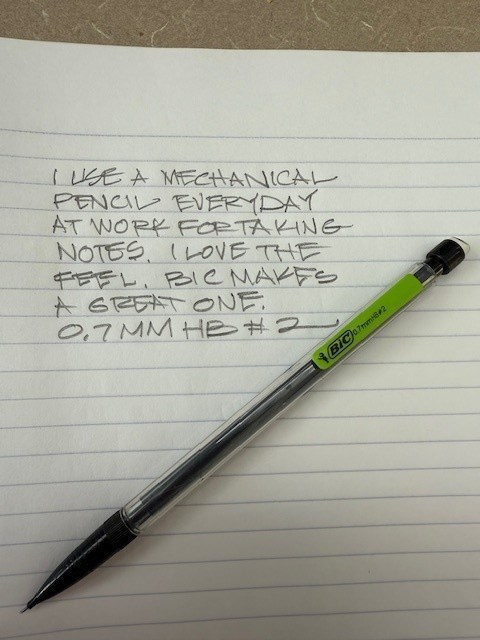 I USE A MECHANICAL
PENCIL EVERYDAY
AT WORK FOR TAKING
NOTES. I LOVE THE
FEEL. BIC MAKES
A GREAT ONE.
0.7MM HB #2
BIC 0.7mm HB#2